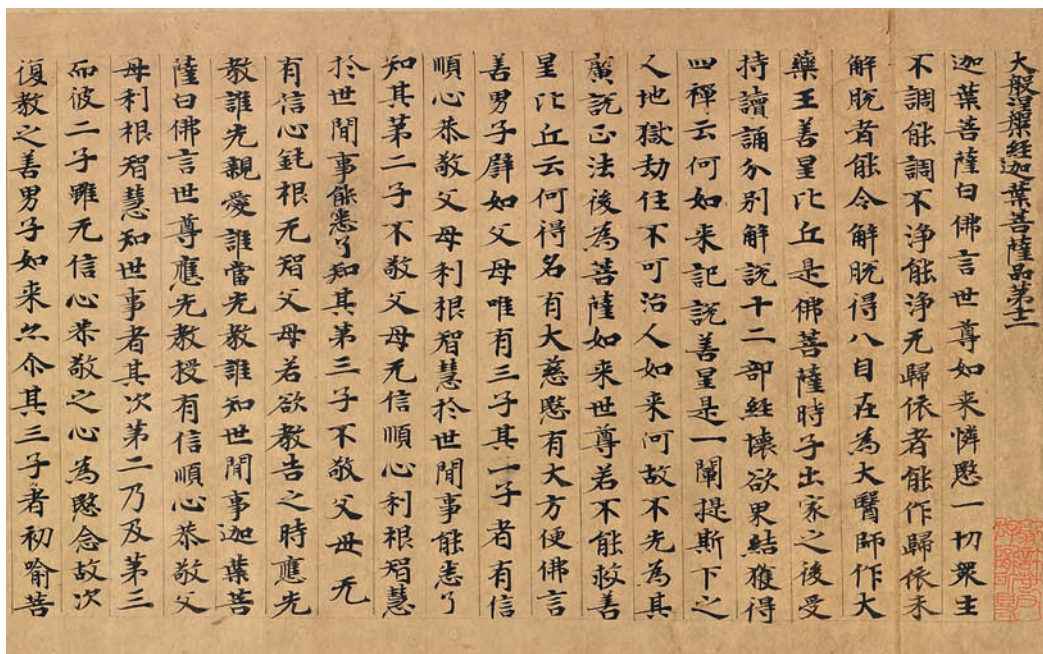 大般涅槃経迦葉菩薩品第十二
迦葉菩薩白佛言世尊如来憐愍一切衆生
不調能調不淨能淨无歸依者能作歸依未
解脫者能令解脫得八自在為大醫師作大
藥王善星比丘是佛菩薩時子出家之後受
持讀誦分別解說十二部経懷欲果結獲得
四禪云何如来記說善星是一闡提斯下之
人地獄劫住不可治人如来何故不先為其
廣說正法後為菩薩如来世尊若不能救善
星比丘云何得名有大慈愍有大方便佛言
善男子譬如父母唯有三子其一子者有信
順心恭敬父母利根智慧於世間事能悉了
知其第二子不敬父母无信順心利根智慧
於世間事能悉了知其第三子不敬父母无
有信心鈍根无智父母若欲教告之時應先
教誰先親愛誰當先教誰知世間事迦葉菩
薩白佛言世尊應先教授有信順心恭敬父
母利根智慧知世事者其次第二乃及第三
而彼二子雖无信心恭敬之心為愍念故次
復教之善男子如来亦尒其三子者初喻菩